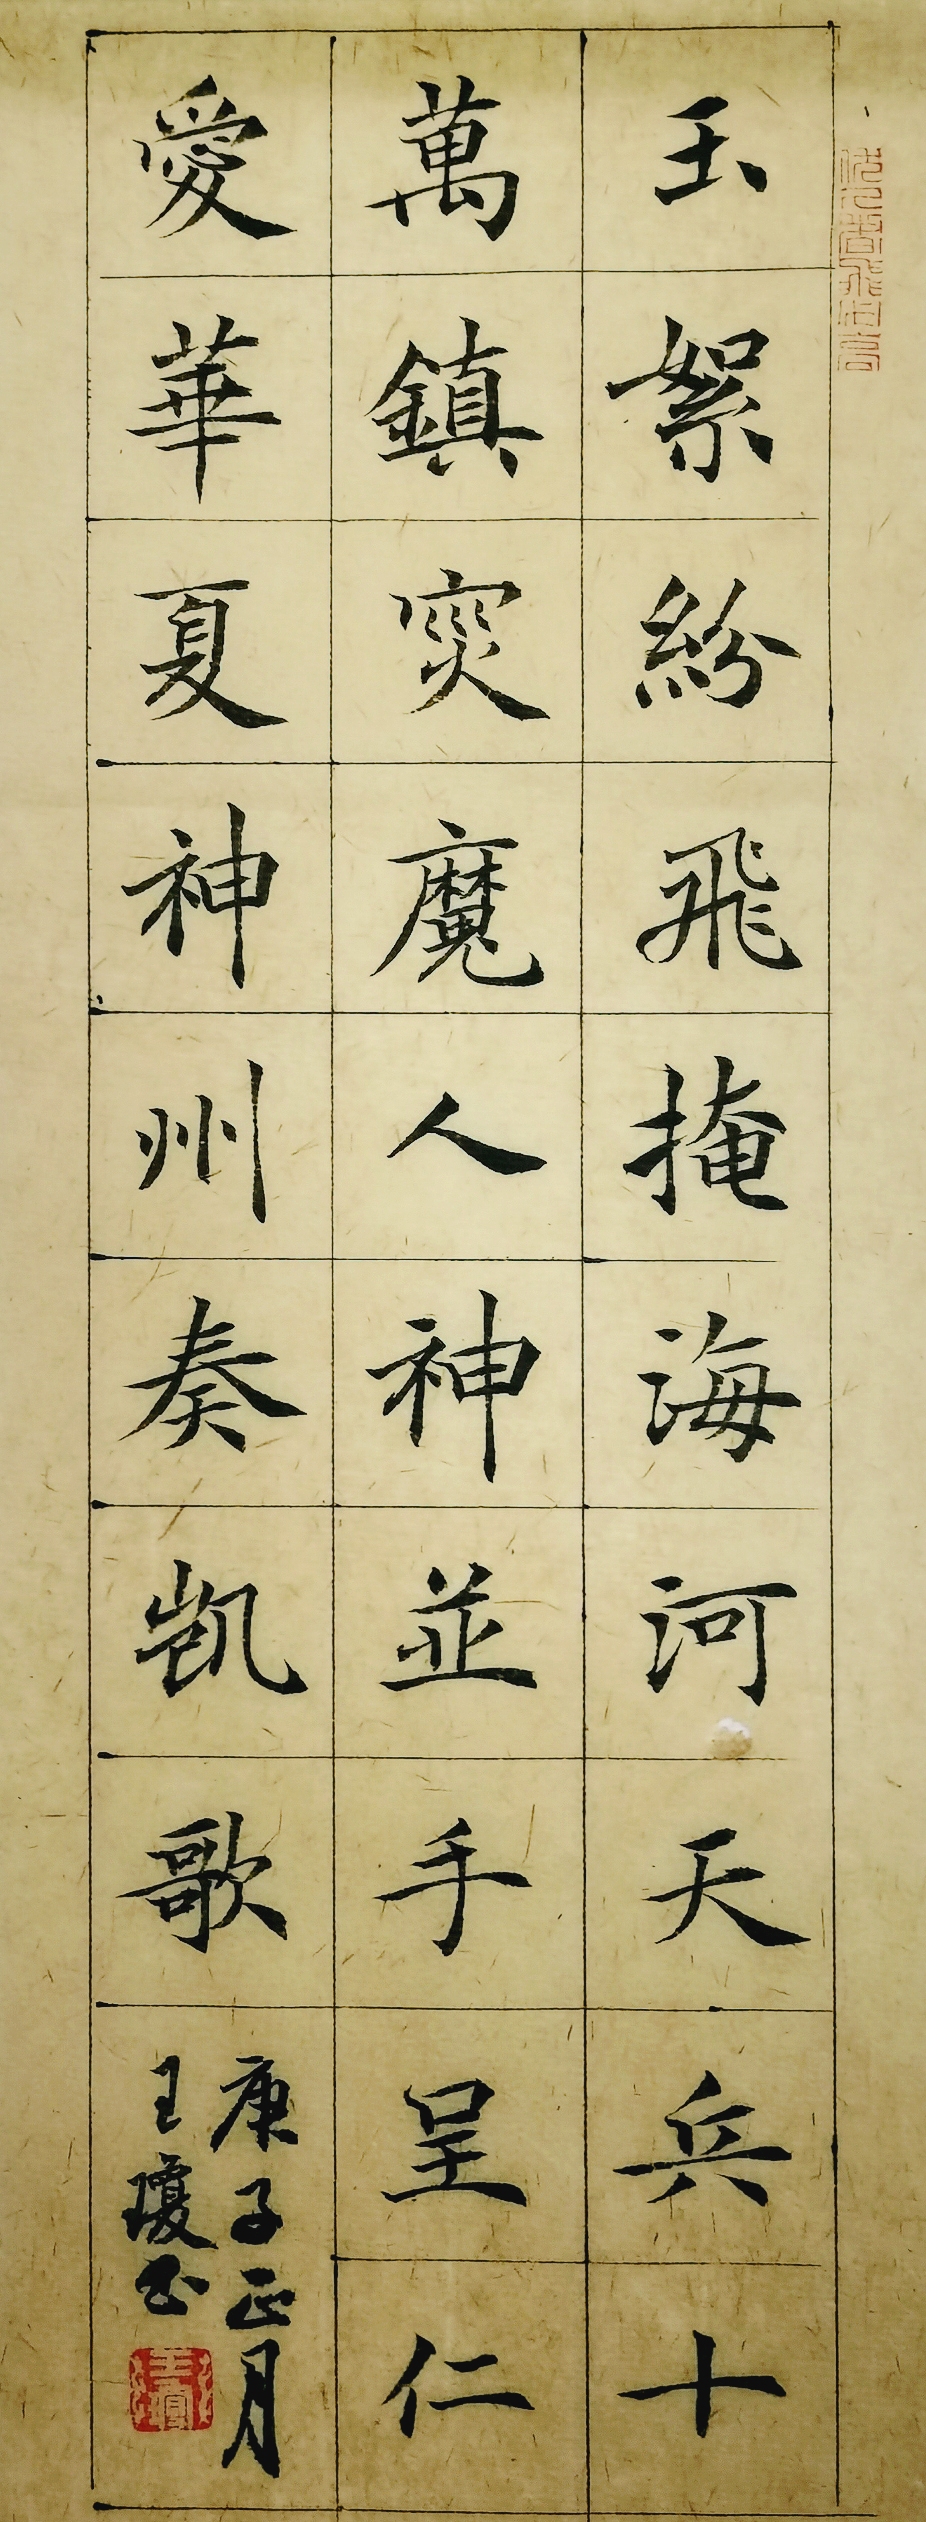 玉絮紛飛掩海河天兵十
萬鎮突魔人神並手呈仁
愛華夏神州奏凱歌
庚子正月
王瓊书